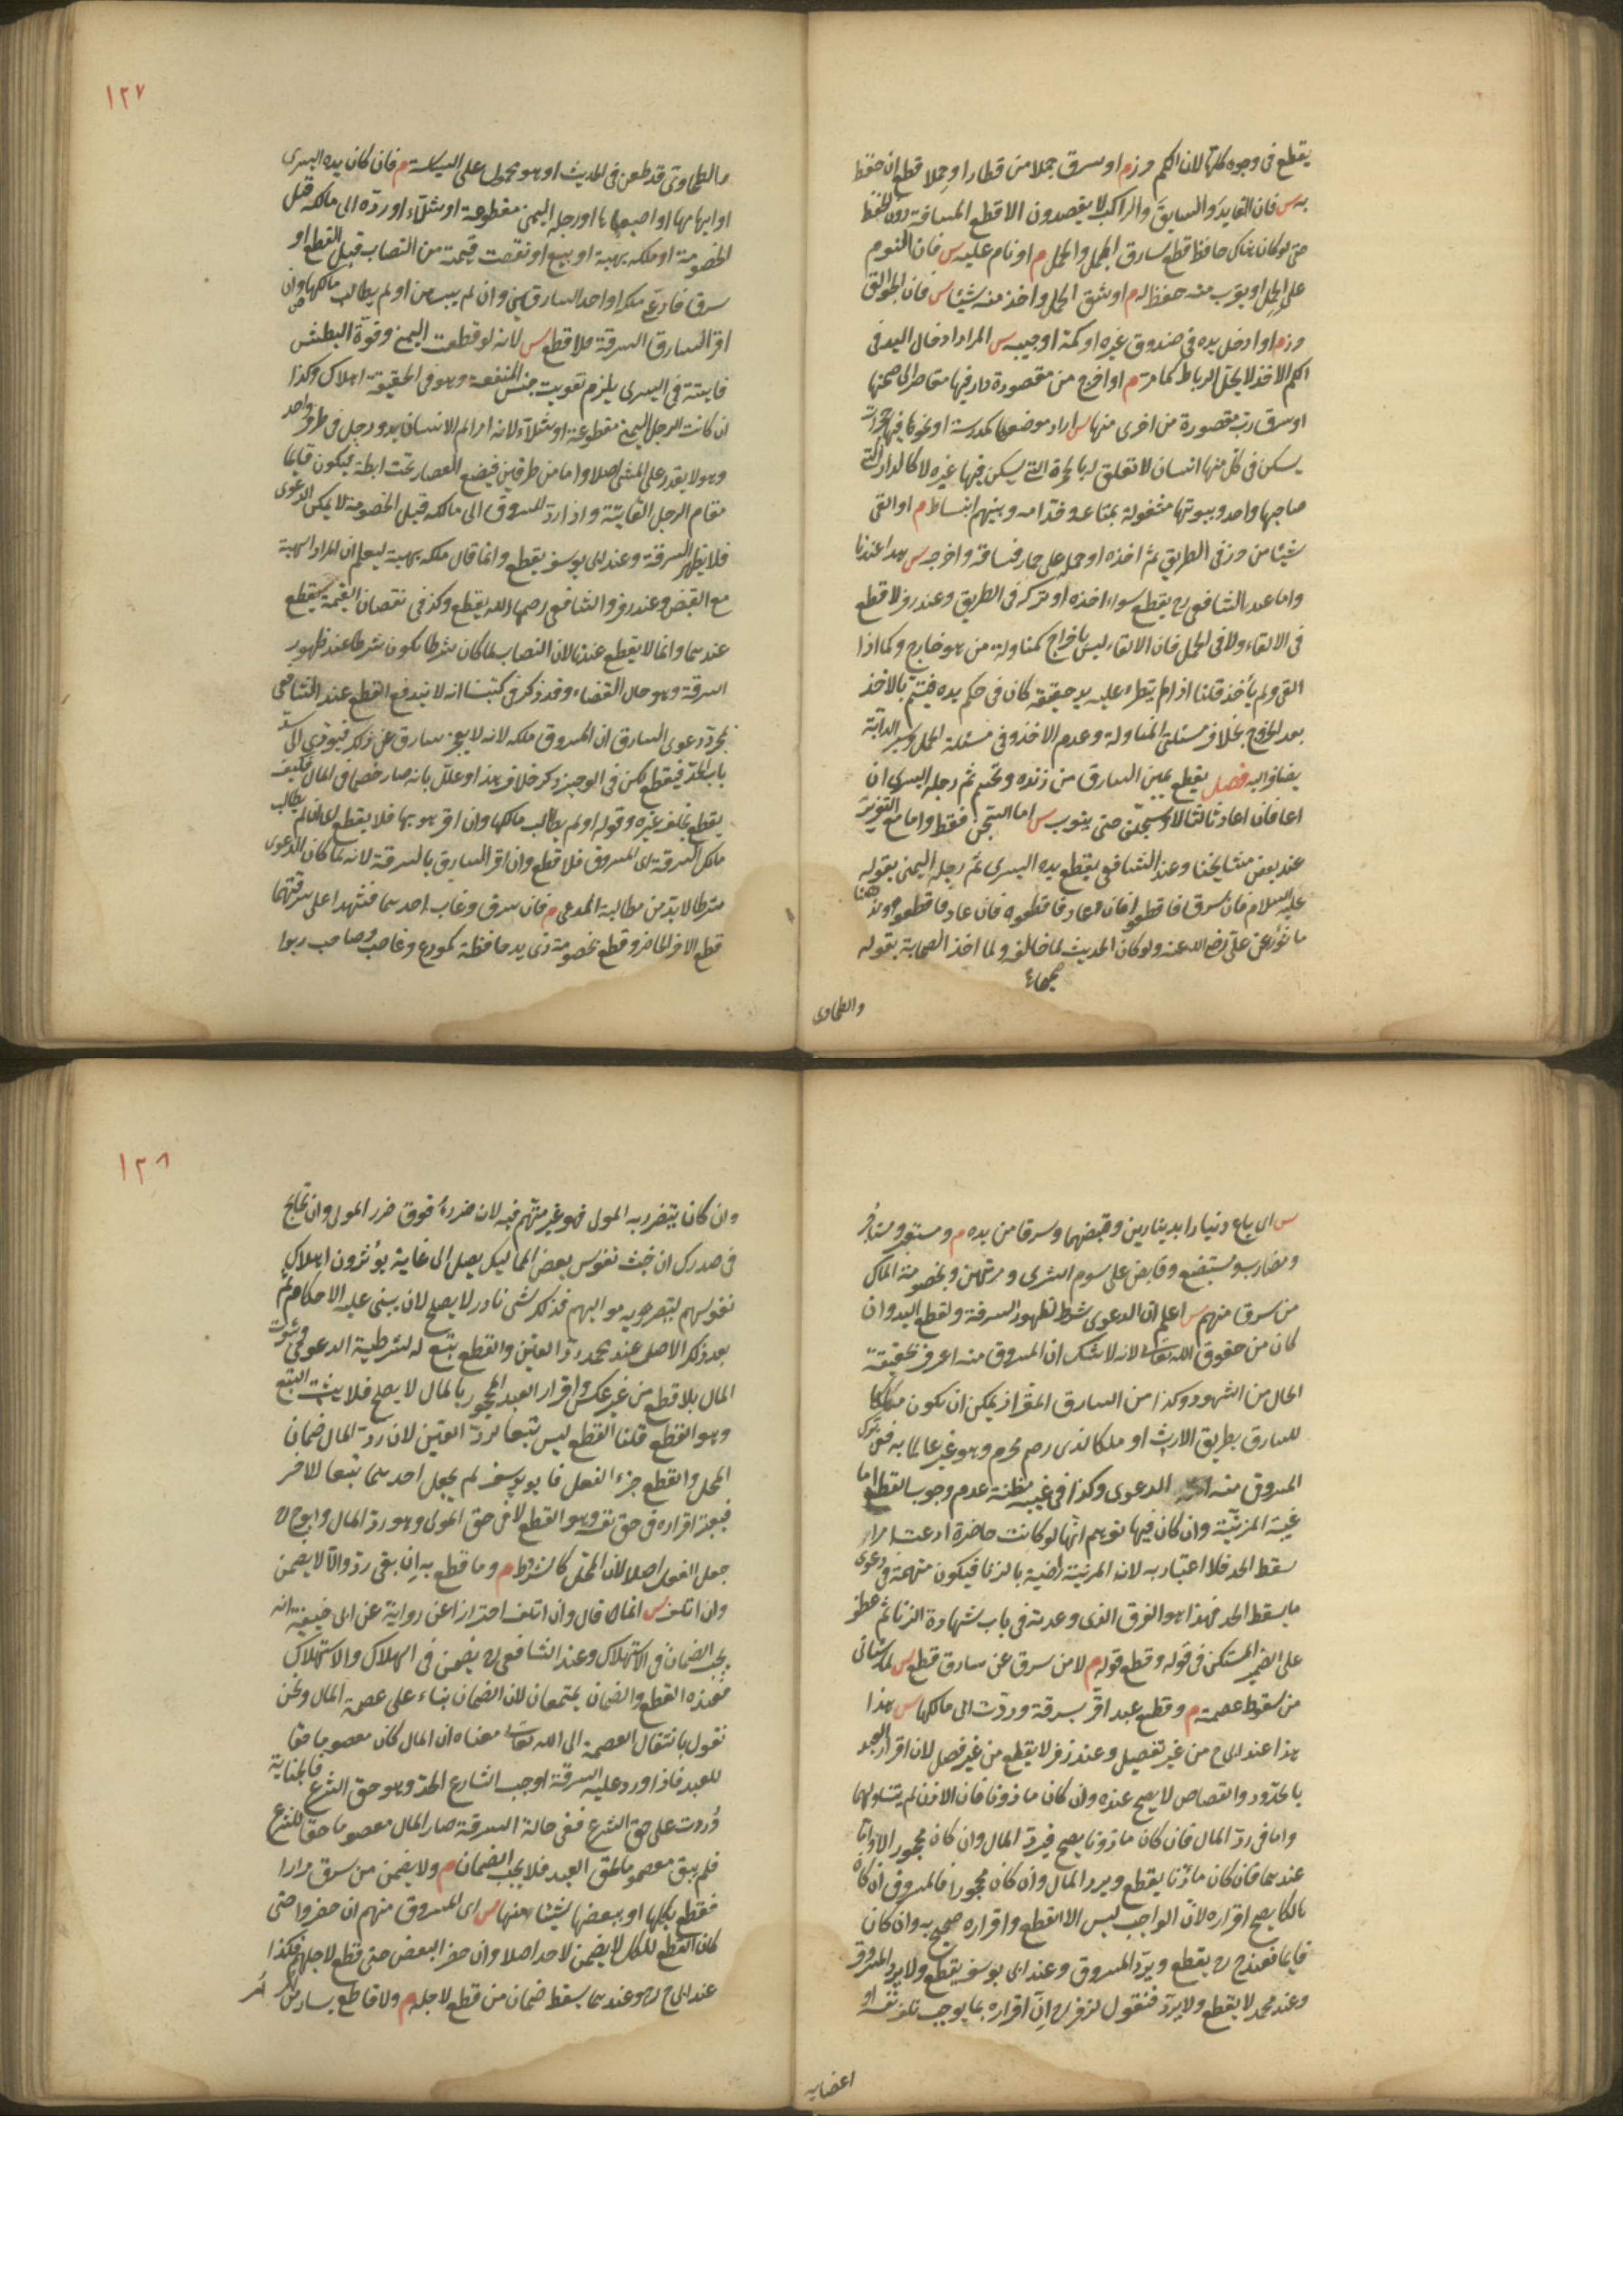 يقطع فى وجوه كلها لان الكم حرز م او سرق جملا من قطار او حملا قطع ان حفظ
به س فان القايد والسايق والراكب لا يقصدون الا قطع المسافة دون الحفظ
حتى لو كان هناك حافظ قطع سارق الجمل والحمل م او نام عليه س فان النوم
على الحمل او بقرب منه حفظ له م او شق الحمل واخذ منه شيئا س فان الجوالق
حرز م او ادخل يده فى صندوق غيره او كمه او جيبه س المراد ادخال اليد فى
الكم الاخذ لا يحل الرباط كما مر م او اخرج من مقصورة دار فيها مقاصر الى صحنها
او سرق رب مقصورة من اخرى منها س اراد موضعا كمدرسة او نحوها فيها حجرات
يسكن فى كل منها انسان لا تعلق له بالحجرة التى يسكن فيها غيره لا كالدار التى
صاحبها واحد وبيوتها مشغولة بمتاعه وخدامه وبينهم انبساط م او القى
شيئا من حرز فى الطريق ثم اخذه او حمله على حمار فساقه واخرجه س هذا عندنا
واما عند الشافعى رح يقطع سواء اخذه او تركه فى الطريق وعند زفر لا قطع
فى الالقاء ولا فى الحمل فان الالقاء ليس باخراج كمناولة من هو خارج وكما اذا
القى ولم ياخذ قلنا اذا لم يتطرء عليه يد حقيقة كان فى حكم يده فيتم بالاخذ
بعد الخروج بخلاف مسئلتى المناولة وعدم الاخذ وفى مسئلة الحمل وسير الدابة
يضاف اليه فصل يقطع يمين السارق من زنده وتحسم ثم رجله اليسرى ان
عاد فان عاد ثالثا لا وسجن حتى يتوب س اما السجن فقط واما مع التعزير
عند بعض مشايخنا وعند الشافعى يقطع يده اليسرى ثم رجله اليمنى بقوله
عليه السلام فان سرق فاقطعوه فان عاد فاقطعوه فان عاد فاقطعوه ولنا
ماثور عن على رضى الله عنه ولو كان الحديث لما خالفه ولما اخذ الصحابة بقوله
والطحاوى
١٢٧
والطحاوى قد طعن فى الحديث او هو محمول على السياسة م فان كان يده اليسرى
او ابهامها او اصبعاها او رجله اليمنى مقطوعة او شلاء او رده الى مالكه قبل
الخصومة او ملكه بهبة او بيع او نقصت قيمته من النصاب قبل القطع او
سرق فادعى ملكه او احد السارقين وان لم يبرهن او لم يطالب مالكها وان
اقر السارق السرقة فلا قطع س لانه لو قطعت اليمنى وقوة البطش
فايتة فى اليسرى يلزم تفويت جنس المنفعة وهو فى الحقيقة اهلاك وكذا
ان كانت الرجل اليمنى مقطوعة او شلاء لانه اذا لم الانسان يد ورجل فى طرف واحد
وهو لا يقدر على المشى اصلا واما من طرفين فيضع العصا تحت ابطه فيكون قايما
مقام الرجل الفايتة واذا رد المسروق الى مالكه قبل الخصومة لا يمكن الدعوى
فلا يظهر السرقة وعند ابى يوسف يقطع وانما قال ملكه بهبة ليعلم ان المراد الهبة
مع القبض وعند زفر والشافعى رحمهما الله يقطع وكذ فى نقصان القيمة يقطع
عندهما وانما لا يقطع عندنا لان النصاب لما كان شرطا يكون شرطا عند ظهور
السرقة وهو حال القضاء وقد ذكر فى كتبنا انه لا يندفع القطع عند الشافعى
بمجرد دعوى السارق ان المسروق ملكه لانه لا يعجز سارق عن ذلك فيؤدى الى سد
باب الحد فيقطع لكن فى الوجيز ذكر خلاف هذا وعلل بانه صار خصما فى المال فكيف
يقطع بحلف غيره وقوله او لم يطالب مالكها وان اقر هو بها فلا يقطع اى ان لم يطالب
مالك السرقة اى المسروق فلا قطع وان اقر السارق بالسرقة لانه لما كان الدعوى
شرطا لا بد من مطالبة المدعى م فان سرق وغاب احدهما فشهدا على سرقتهما
قطع الاخر الحاضر وقطع بخصومة ذى يد حافظة كمودع وغاصب وصاحب ربوا
س اى باع دينارا بدينارين وقبضهما وسرقا من يده م ومستعير ومستاجر
ومضارب ومستبضع وقابض على سوم الشرى ومرتهن وبخصومة المالك
من سرق منهم س اعلم ان الدعوى شرط لظهور السرقة ولقطع اليد وان
كان من حقوق الله تعالى لانه لا شك ان المسروق منه اعرف بحقيقة
الحال من الشهود وكذا من السارق المقر اذ يمكن ان يكون ملكا
للسارق بطريق الارث او ملكا لذى رحم محرم وهو غير عالم به ففى ترك
المسروق منه الدعوى وكذا فى غيبته مظنة عدم وجوب القطع اما
غيبة المزنية وان كان فيها توهم انها لو كانت حاضرة ادعت امرا
يسقط الحد فلا اعتبار به لان المزنية راضية بالزنا فيكون متهمة فى دعوى
ما يسقط الحد فهذا هو الفرق الذى وعدته فى باب شهادة الزنا ثم عطف
على الضمير المستكن فى قوله وقطع قوله م لا من سرق عن سارق قطع س لما سياتى
من سقوط عصمته م وقطع عبد اقر بسرقة وردت الى مالكها س هذا
هذا عند ابى ح من غير تفصيل وعند زفر لا يقطع من غير فصل لان اقرار العبد
بالحدود والقصاص لا يصح عنده وان كان ماذونا فان الاذن لم يتناولهما
واما فى رد المال فان كان ماذونا يصح فيرد المال وان كان محجورا لا واما
عندهما فان كان ماذنا يقطع ويرد المال وان كان محجورا فالمسروق ان كان
هالكا يصح اقراره لان الواجب ليس الا القطع واقراره صحيح به وان كان
قايما فعند ح رح يقطع ويرد المسروق وعند ابى يوسف يقطع ولا يرد المسروق
وعند محمد لا يقطع ولا يرد فنقول لزفر رح ان اقراره بما يوجب تلف نفسه او
اعضايه
١٢٨
وان كان يتضرر به المولى فهو غير متهم فيه لان ضرره فوق ضرر المولى وان تخالج
فى صدرك ان خبث نفوس بعض المماليك يصل الى غاية يوثرون اهلاك
نفوسهم ليتضرر به مواليهم فذلك شى نادر لا يصلح لان يبنى عليه الاحكام ثم
بعد ذلك الاصل عند محمد رد العين والقطع يتبع له لشرطية الدعوى وثبوت
المال بلا قطع من غير عكس واقرار العبد المحجور بالمال لا يصح فلا يثبت التبع
وهو القطع قلنا القطع ليس تبعا لرد العين لان رد المال ضمان
المحل والقطع جزاء الفعل فابو يوسف لم يجعل احدهما تبعا للاخر
فيعتبر اقراره فى حق نفسه وهو القطع لا فى حق المولى وهو رد المال وابو ح رح
جعل الفعل اصلا لان المحل كالشرط م وما قطع به ان بقى رد والا لا يضمن
وان اتلف س انما قال وان اتلف احترازا عن رواية عن ابى حنيفة انه
يجب الضمان فى الاستهلاك وعند الشافعى رح يضمن فى الهلاك والاستهلاك
فعنده القطع والضمان يجتمعان لان الضمان بناء على عصمة المال ونحن
نقول بانتقال العصمة الى الله تعالى معناه ان المال كان معصوما حقا
للعبد فاذا ورد عليه السرقة اوجب الشارع الحد وهو حق الشرع فالجناية
وردت على حق الشرع ففى حالة السرقة صار المال معصوما حق للشرع
فلم يبق معصوما لحق العبد فلا يجب الضمان م ولا يضمن من سرق مرارا
فقطع بكلها او ببعضها شيئا منها س اى المسروق منهم ان حضروا حتى
كان القطع للكل لا يضمن لاحد اصلا وان حضر البعض حتى قطع لاجلهم فكذا
عند ابى ح رح وعندهما يسقط ضمان من قطع لاجله م ولا قاطع يسار من